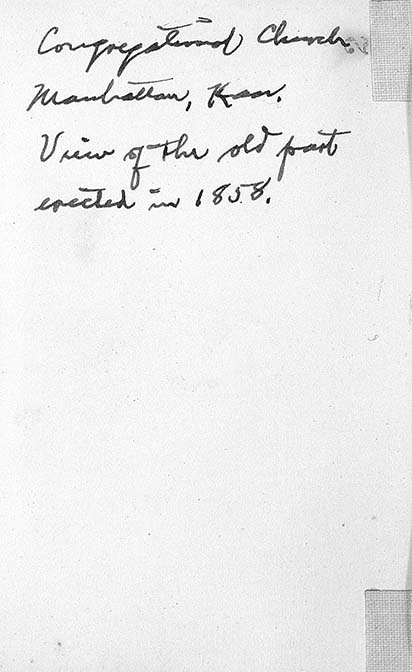 Congregational Church
Manhattan, Kan.
View of the old part
erected in 1858.